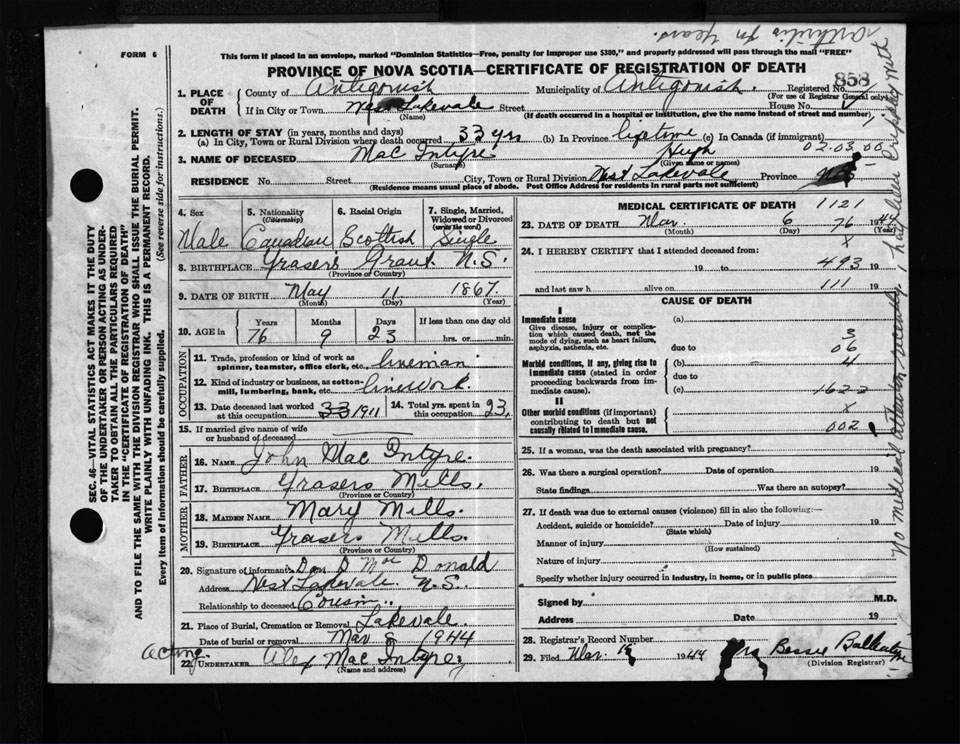 FORM 6
This form if placed in an envelope, marked "Dominion Statistics—Free, penalty for improper use $300," and properly addressed will pass through the mail "FREE"
PROVINCE OF NOVA SCOTIA—CERTIFICATE OF REGISTRATION OF DEATH
858
1. PLACE OF DEATH
County of Antigonish Municipality of Antigonish. Registered No.
(For use of Registrar General only)
If in City or Town Lakevale Street House No.
(Name) (If death occurred in a hospital or institution, give the name instead of street and number)
2. LENGTH OF STAY (in years, months and days)
(a) In City, Town or Rural Division where death occurred 33 yrs (b) In Province lifetime (c) In Canada (if immigrant)
02-03-00
3. NAME OF DECEASED Mac Intyre Hugh
(Surname) (Given name or names)
RESIDENCE No. Street City, Town or Rural Division West Lakevale Province
(Residence means usual place of abode. Post Office Address for residents in rural parts not sufficient)
4. Sex
Male
5. Nationality (Citizenship)
Canadian
6. Racial Origin
Scottish
7. Single, Married, Widowed or Divorced (write the word)
Single
8. BIRTHPLACE Frasers Grant N.S.
(Province or Country)
9. DATE OF BIRTH May 11 1867.
(Month) (Day) (Year)
10. AGE in
Years Months Days If less than one day old
76 9 23 hrs. or min.
OCCUPATION
11. Trade, profession or kind of work as spinner, teamster, office clerk, etc. lineman
12. Kind of industry or business, as cotton-mill, lumbering, bank, etc. linework
13. Date deceased last worked at this occupation 33 1911
14. Total yrs. spent in this occupation 23,
15. If married give name of wife or husband of deceased
FATHER
16. NAME John Mac Intyre.
17. BIRTHPLACE Frasers Mills.
(Province or Country)
MOTHER
18. MAIDEN NAME Mary Mills.
19. BIRTHPLACE Frasers Mills.
(Province or Country)
20. Signature of informant Dan D Mac Donald
Address West Lakevale. N.S.
Relationship to deceased Cousin
21. Place of Burial, Cremation or Removal Lakevale
Date of burial or removal Mar 8 1944
Acting
22. UNDERTAKER Alex Mac Intyre
(Name and address)
MEDICAL CERTIFICATE OF DEATH
1121
23. DATE OF DEATH Mar. 6 1944
76
(Month) (Day) (Year)
X
24. I HEREBY CERTIFY that I attended deceased from:
19 to 493 19
and last saw h alive on 111 19
CAUSE OF DEATH
I
Immediate cause
Give disease, injury or complication which caused death, not the mode of dying, such as heart failure, asphyxia, asthenia, etc.
(a)
due to
3
06
Morbid conditions, if any, giving rise to immediate cause (stated in order proceeding backwards from immediate cause).
(b) 4
due to
(c) 162-2
II
X
Other morbid conditions (if important) contributing to death but not causally related to immediate cause.
002
25. If a woman, was the death associated with pregnancy?
26. Was there a surgical operation? Date of operation 19
State findings Was there an autopsy?
27. If death was due to external causes (violence) fill in also the following:—
Accident, suicide or homicide? Date of injury 19
(State which)
Manner of injury
(How sustained)
Nature of injury
Specify whether injury occurred in industry, in home, or in public place
Signed by M.D.
Address Date 19
28. Registrar's Record Number
29. Filed Mar. 1944 Mrs Bessie
(Division Registrar)
SEC. 46—VITAL STATISTICS ACT MAKES IT THE DUTY
OF THE UNDERTAKER OR PERSON ACTING AS UNDER-
TAKER TO OBTAIN ALL THE PARTICULARS REQUIRED
IN THE "CERTIFICATE OF REGISTRATION OF DEATH"
AND TO FILE THE SAME WITH THE DIVISION REGISTRAR WHO SHALL ISSUE THE BURIAL PERMIT.
WRITE PLAINLY WITH UNFADING INK. THIS IS A PERMANENT RECORD.
Every item of information should be carefully supplied. (See reverse side for instructions.)
No medical attendant recently,
Arthritis for Years.